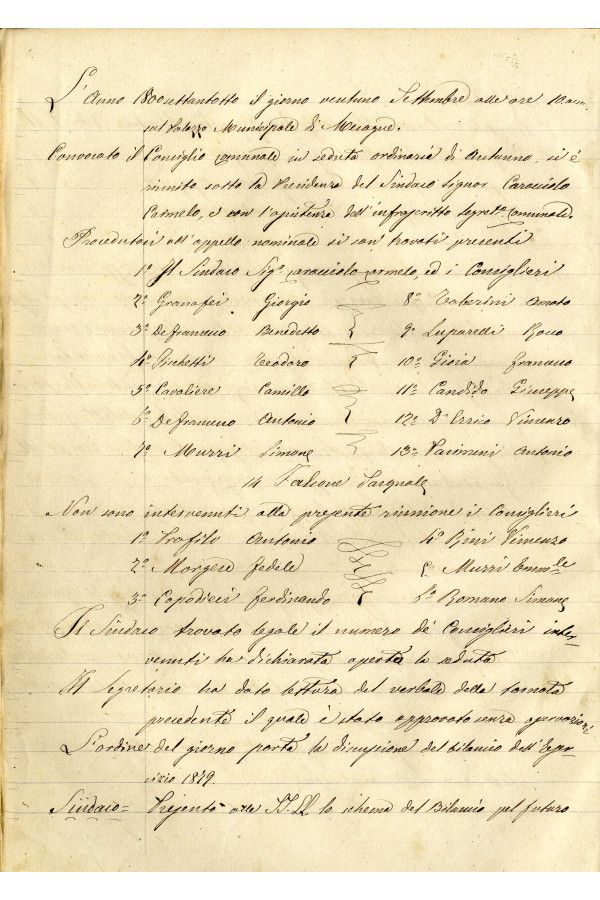 L'Anno 1800settantotto il giorno ventuno Settembre alle ore 10 am.
sul Palazzo Municipale di Mesagne.
Convocato il Consiglio comunale in seduta ordinaria di Autunno, si è
riunito sotto la Presidenza del Sindaco Signor Caracciolo
Carmelo, e con l'assistenza dell'infrascritto Segret.o comunale.
Procedutosi all'appello nominale si son trovati presenti
1º Il Sindaco Sig.r Caracciolo Carmelo, ed i Consiglieri
2º Granafei Giorgio 8º Taberini Amato
3º Defrancesco Benedetto 9º Luparelli Rocco
4º Teodoro 10º Gioia Francesco
5º Cavaliere Camillo 11º Candido Giuseppe
6º Defrancesco Antonio 12º D'Errico Vincenzo
7º Murri Simone 13º Antonio
14 Falcone Pasquale
Non sono intervenuti alla presente riunione i Consiglieri
1º Profilo Antonio 4º Rini Vincenzo
2º Morgese Fedele 5º Murri Emm.le
3º Capodieci Ferdinando 6º Romano Simone
Il Sindaco trovato legale il numero de' Consiglieri inter-
venuti ha dichiarata aperta la seduta
Il Segretario ha dato lettura del verbale della tornata
precedente il quale è stato approvato senza osservazioni
L'ordine del giorno porta la discussione del bilancio dell'Eser-
cizio 1879.
Sindaco = Presento alle SS. LL. lo schema del Bilancio pel futuro